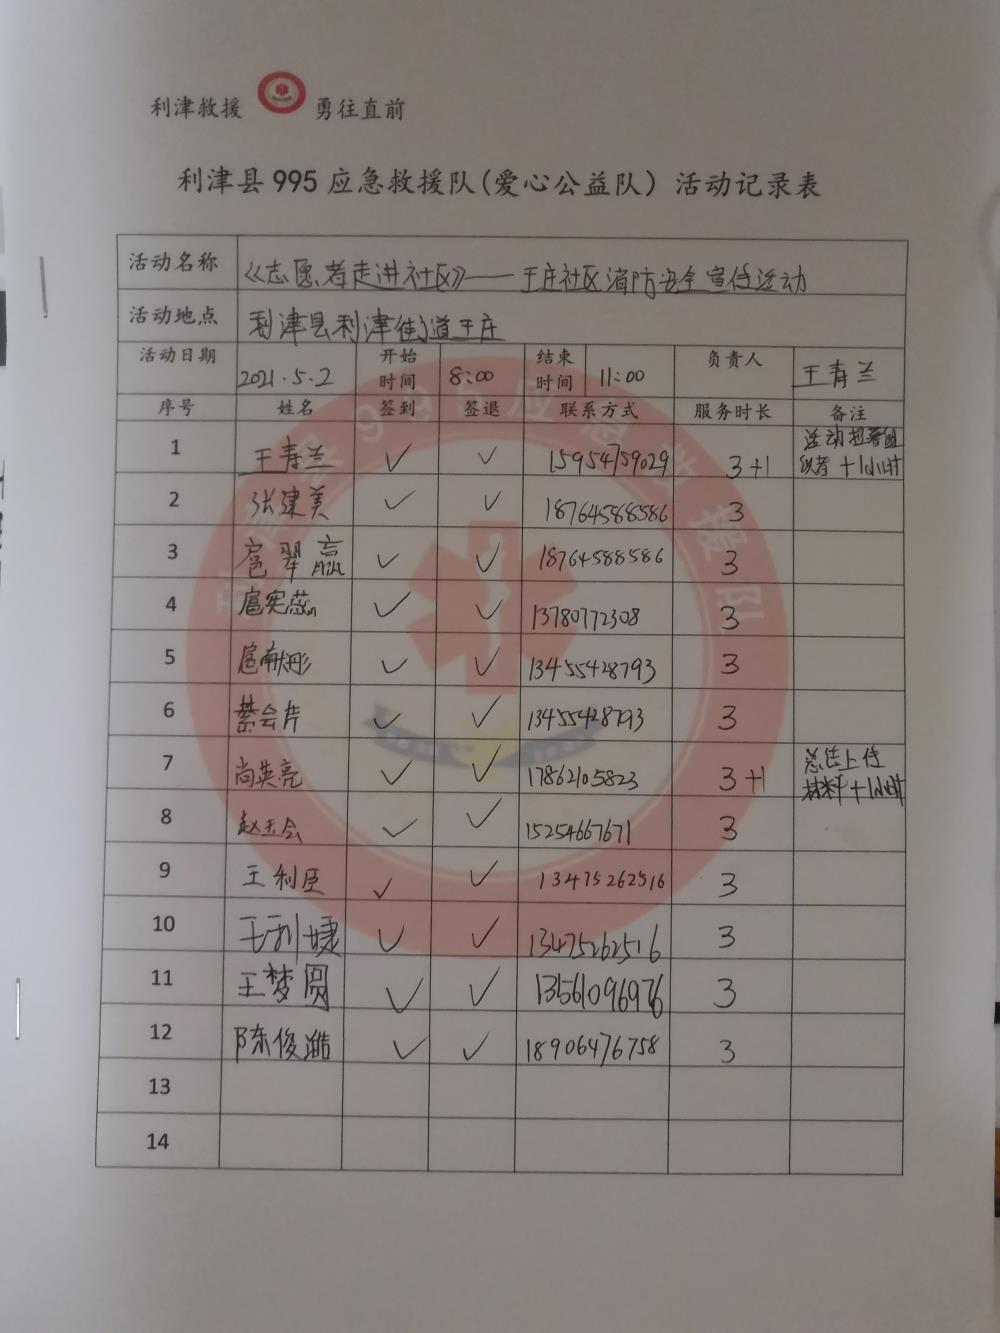 利津救援 勇往直前
利津县 995 应急救援队(爱心公益队) 活动记录表
活动名称 《志愿者走进社区》——王庄社区消防安全宣传活动
活动地点 利津县利津街道王庄
活动日期 2021.5.2 开始时间 8:00 结束时间 11:00 负责人 王寿兰
序号 姓名 签到 签退 联系方式 服务时长 备注
1 王寿兰 ✓ ✓ 15954759029 3+1 +1小时
2 张建美 ✓ ✓ 18764588586 3
3 扈翠赢 ✓ ✓ 18764588586 3
4 扈宪蕊 ✓ ✓ 13780772308 3
5 扈献彤 ✓ ✓ 13455428793 3
6 綦会片 ✓ ✓ 13455428793 3
7 尚英亮 ✓ ✓ 17862105823 3+1 总结上传材料+1小时
8 赵玉会 ✓ ✓ 15254667671 3
9 王利臣 ✓ ✓ 13475262516 3
10 王利婕 ✓ ✓ 13475262516 3
11 王梦圆 ✓ ✓ 13561096976 3
12 陈俊澔 ✓ ✓ 18906476758 3
13
14